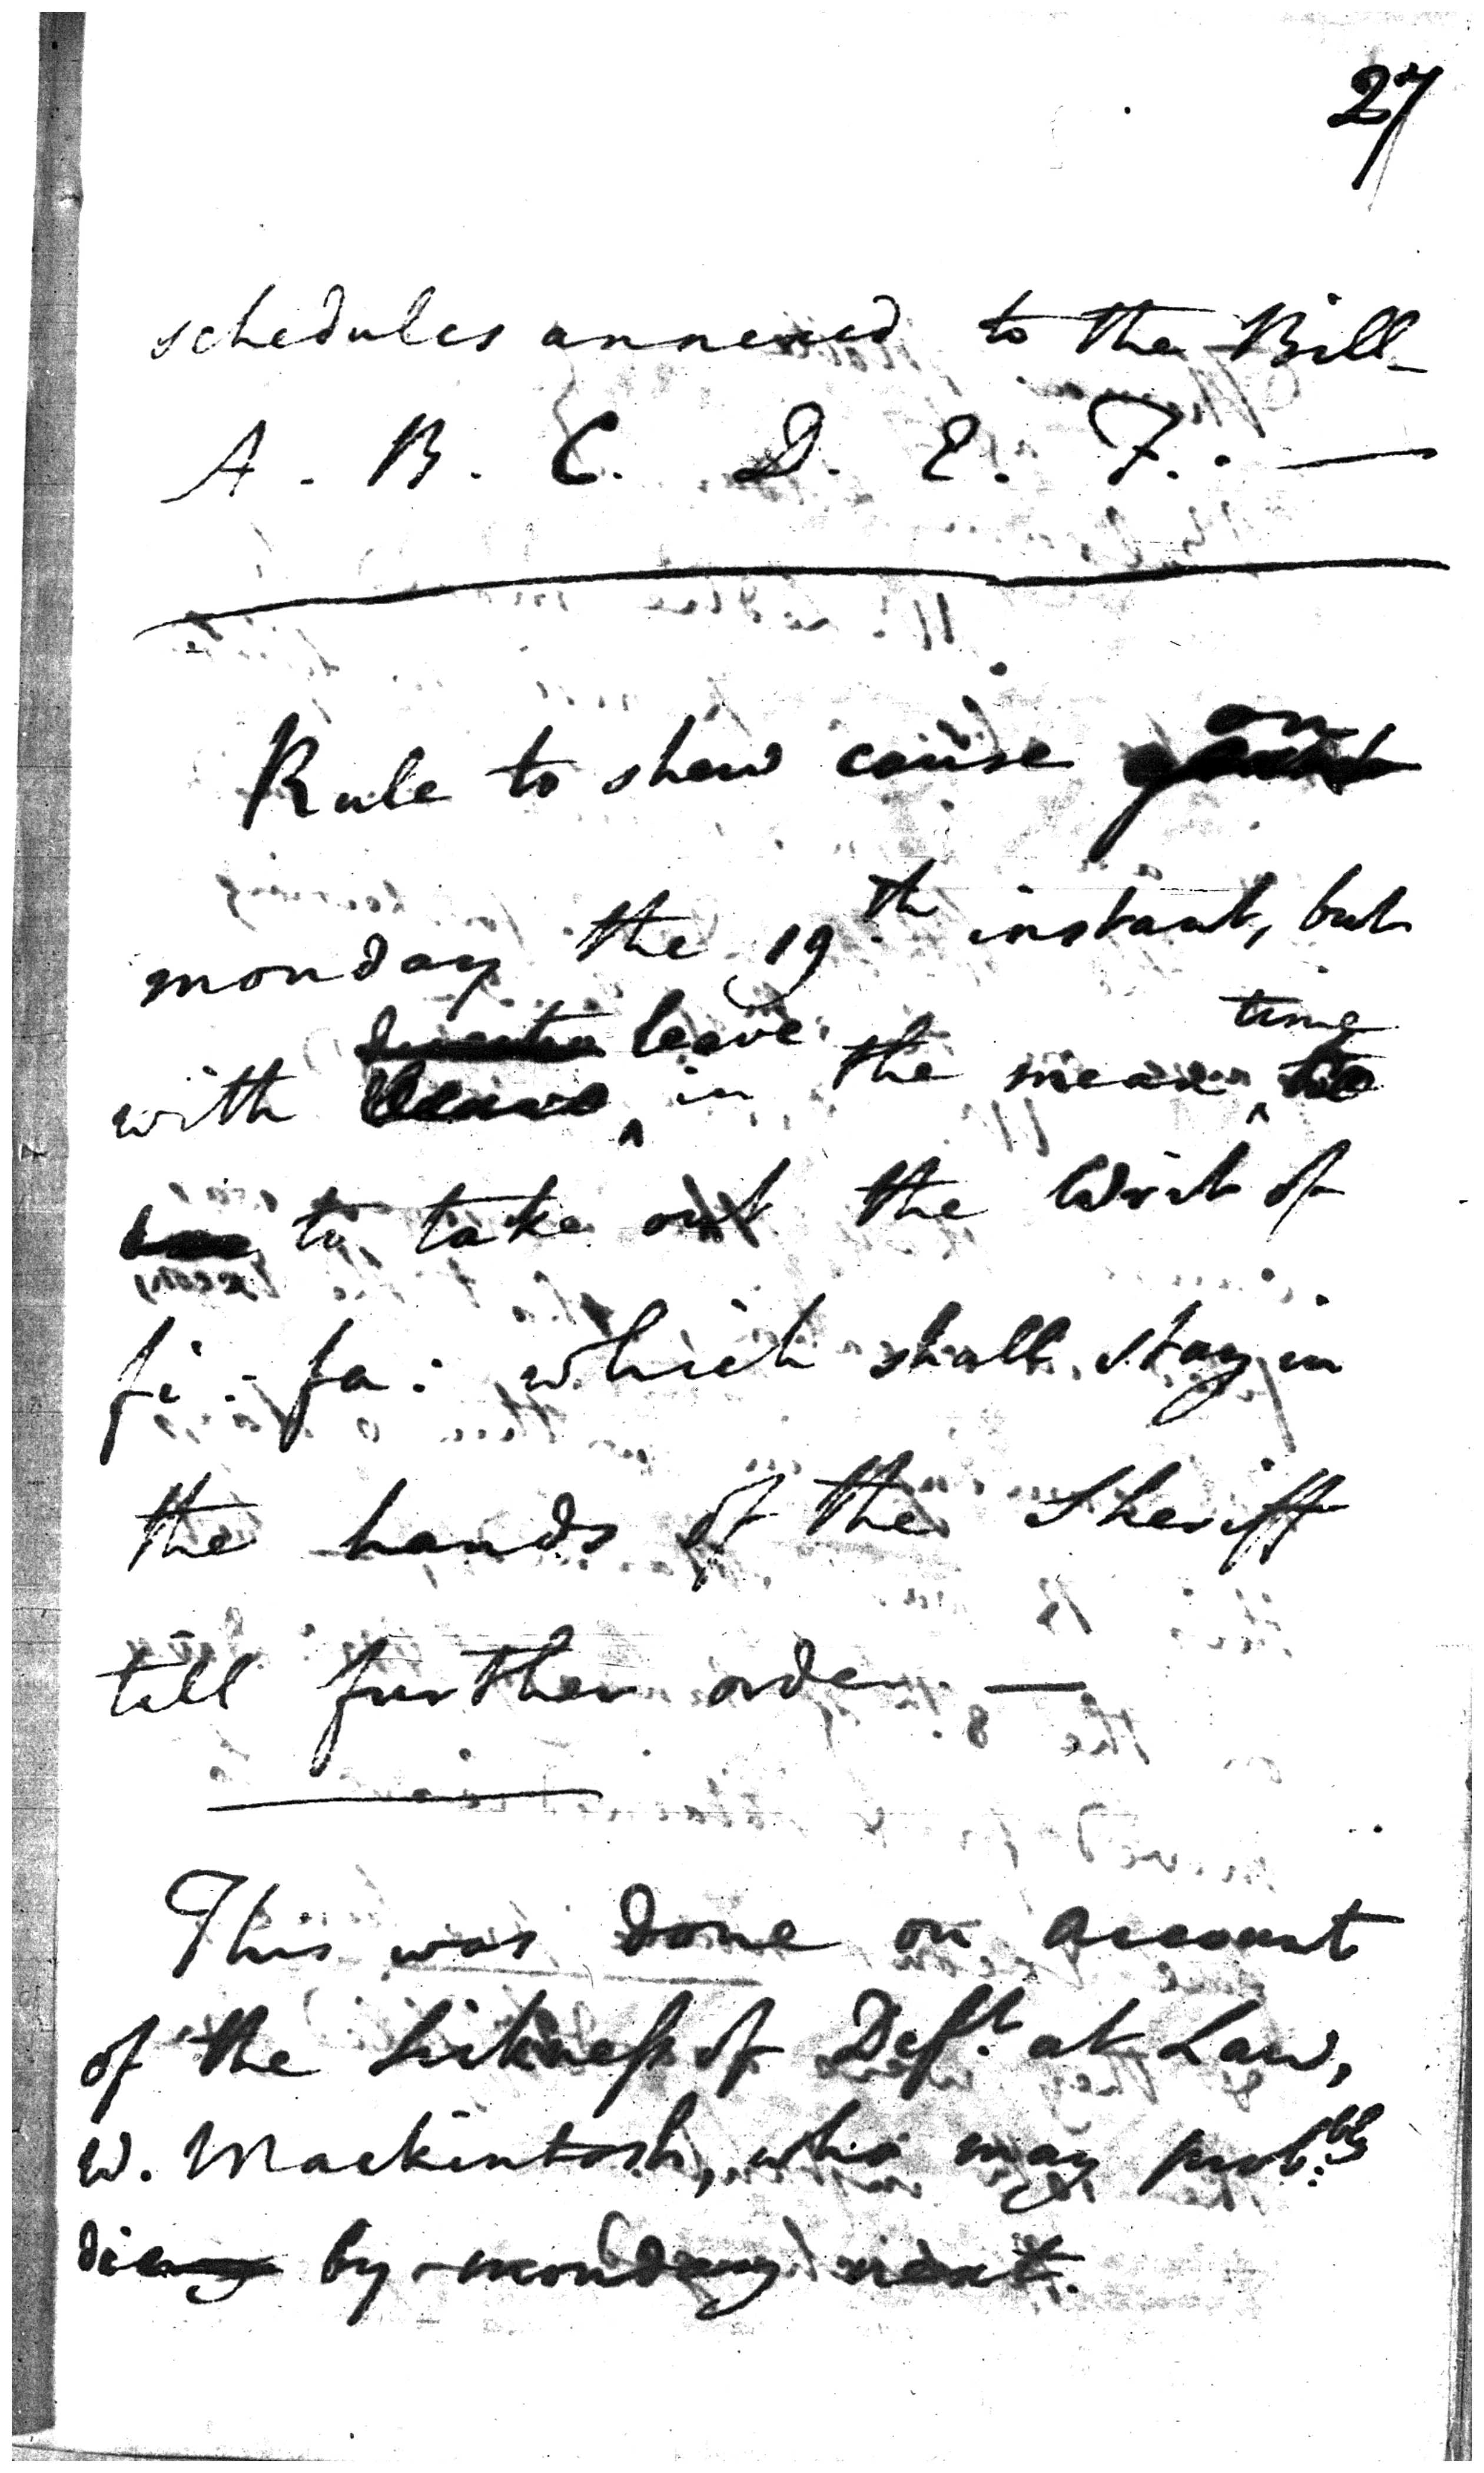 27
schedules annexed to the Bill
A. B. C. D. E. F. —
Rule to shew cause on
monday the 19th instant, but
with leave in the mean time
to take out the Writ of
fi: fa: which shall stay in
the hands of the Sheriff
till further order —
This was done on account
of the Sickness of Deft. at Law,
W. Mackintosh, who may prob:bly
die by monday next.